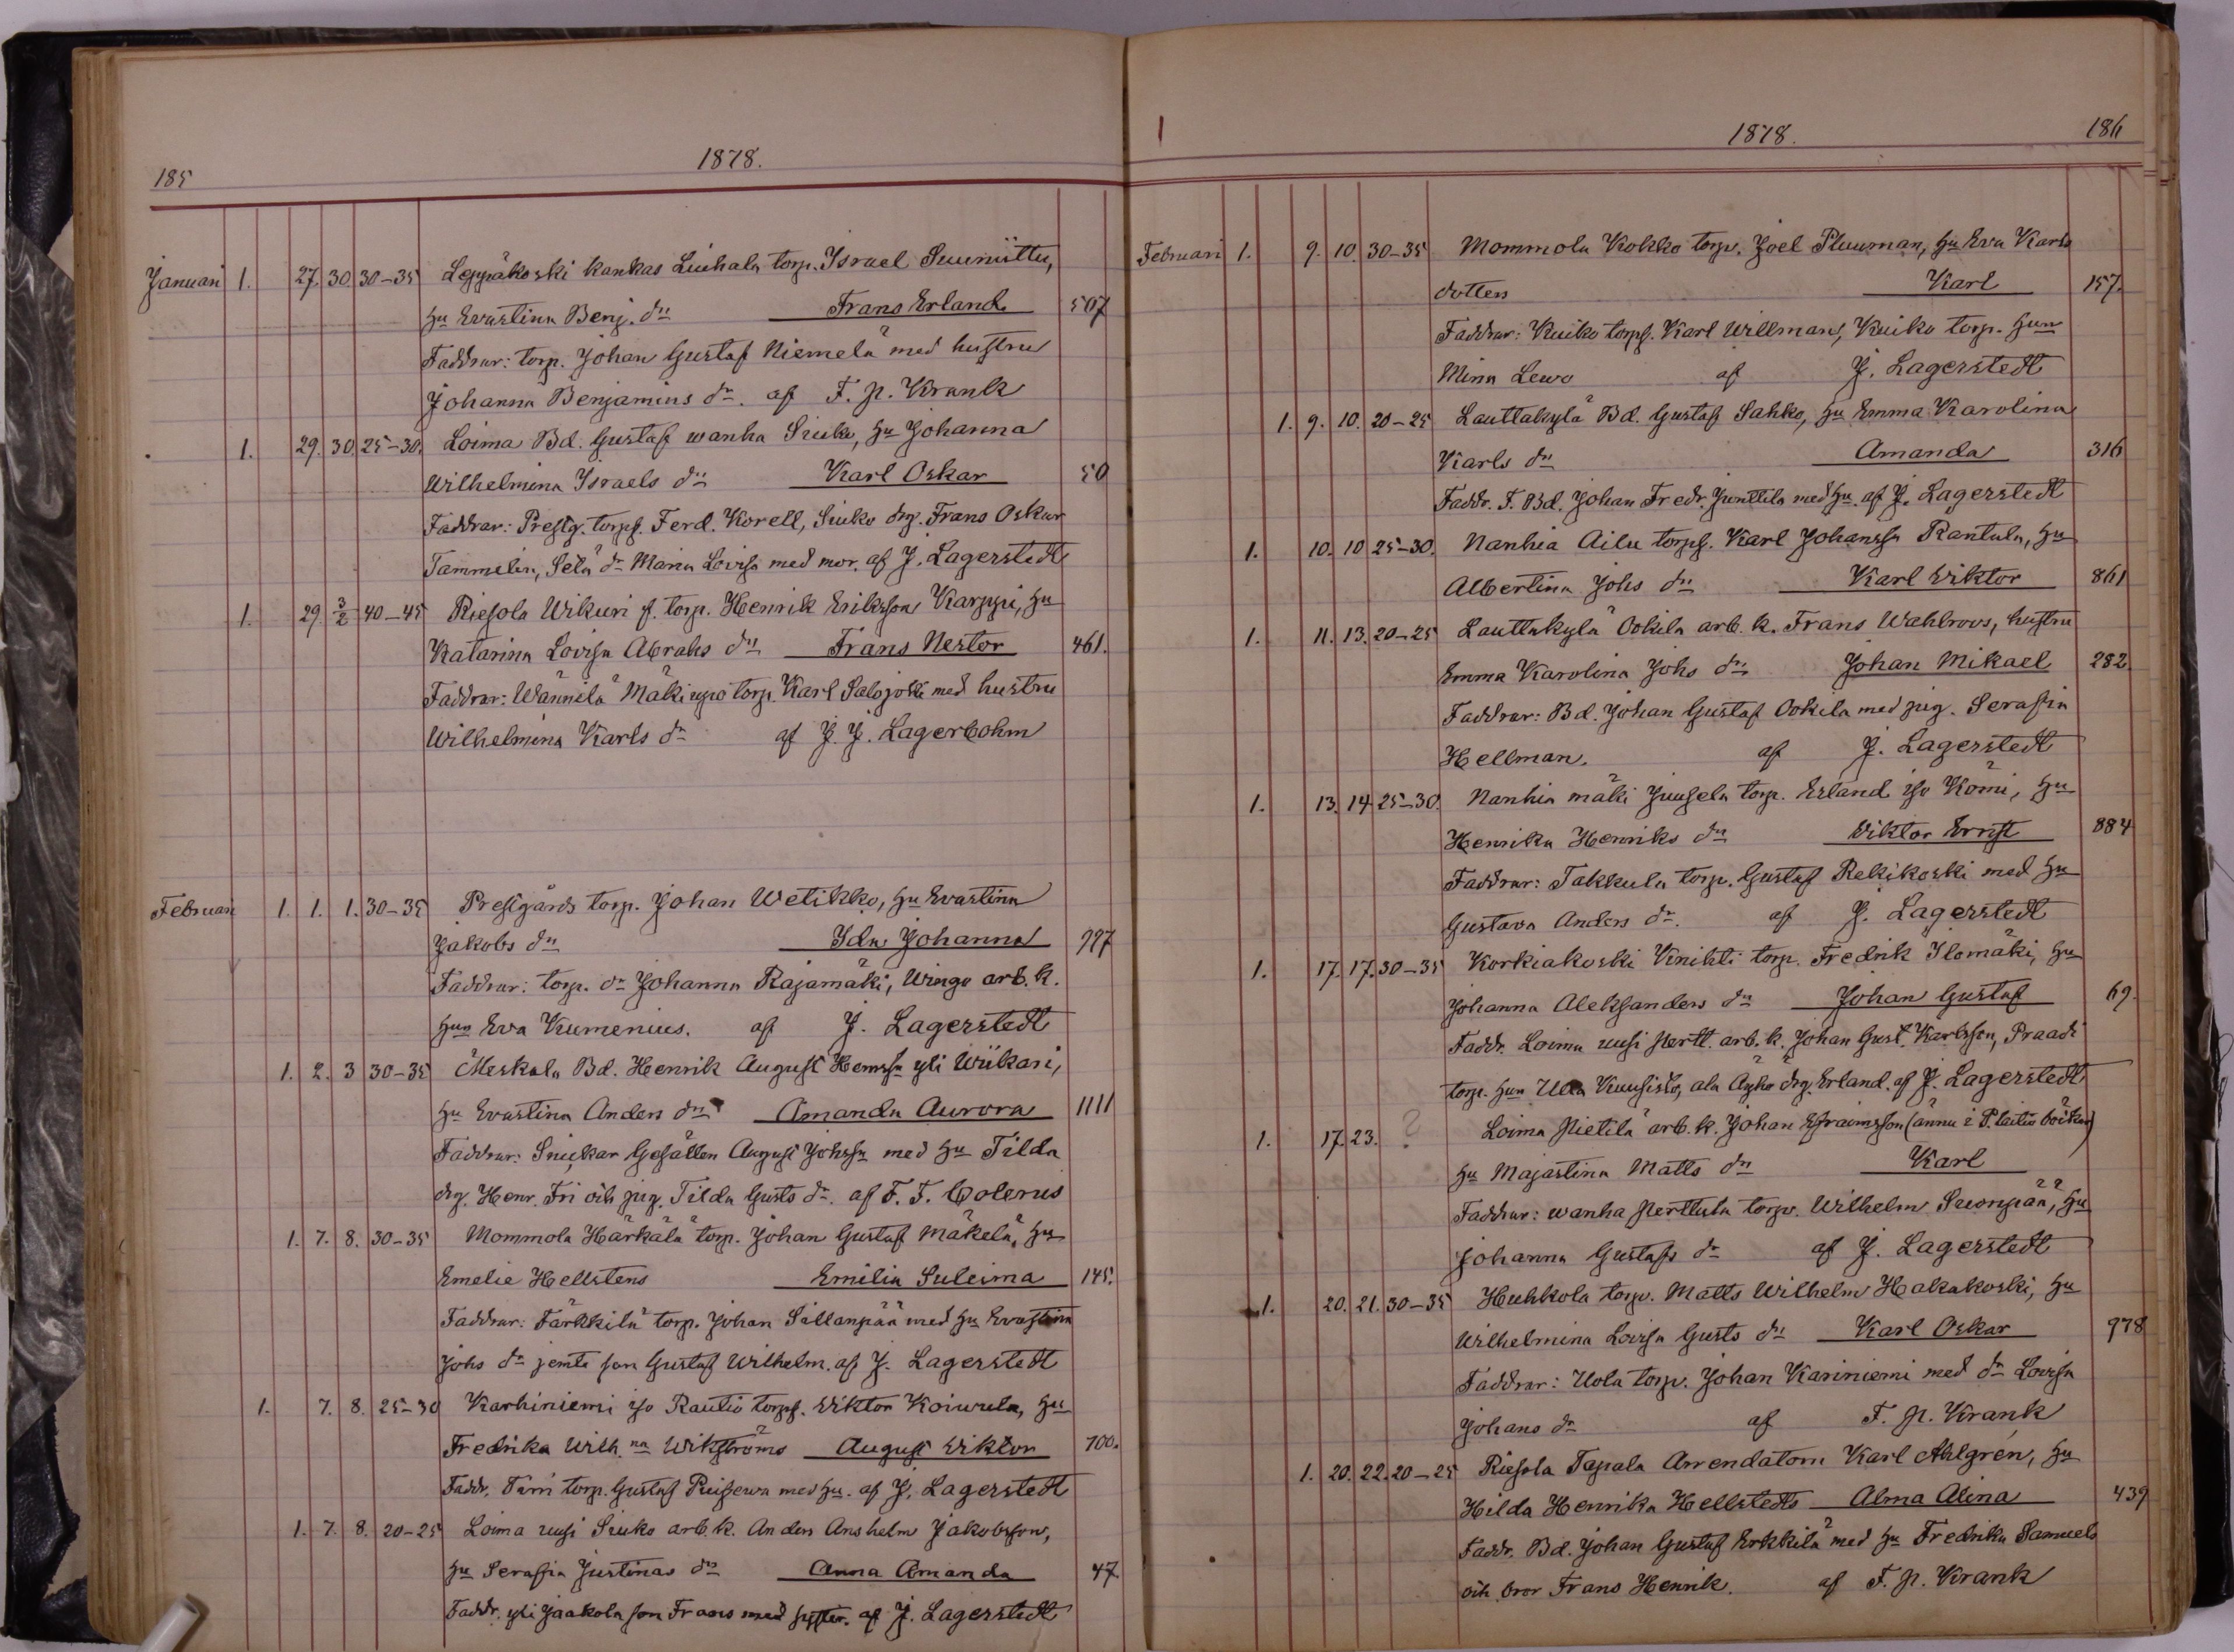 185
1878.
Januari 1. 27. 30. 30–35 Leppäkoski kankas Liuhala torp. Israel Suuniittu,
hu Evastina Benj. dr Frans Erland 507
Faddrar: torp. Johan Gustaf Niemelä med hustru
Johanna Benjamins dr. af F. P. Krank
1. 29. 30. 25–30. Loima Bd. Gustaf wanha Seuko, hu Johanna
Wilhelmina Israels dr Karl Oskar 50
Faddrar: Prestg. torps. Ferd. Korell, Siuko drg. Frans Oskar
Tammelin, Selä dr Maria Lovisa med mor. af J. Lagerstedt
1. 29 3/2 40–45 Riesola Wikuri f. torp. Henrik Eriksson Karppi, hu
Katarina Lovisa Abrahs dr Frans Nestor 461.
Faddrar: Wännilä Mäkiuppo torp. Karl Salojoki med hustru
Wilhelmina Karls dr af J. J. Lagerbohm
Februari 1. 1. 1. 30–35 Prestgårds torp. Johan Wetikko, hu Evastina
Jakobs dr Ida Johanna 997
Faddrar: torp. dr Johanna Rajamäki, Wingo arb. k.
hun Eva Kumenius. af J. Lagerstedt
1. 2. 3 30–35 Meskala Bd. Henrik August Henrssn yli Wiikari,
hu Evastina Anders dr Amanda Aurora 1111
Faddrar: Snickar Gesällen August Johssn med hu Tilda
drg. Henr. Fri och pig. Tilda Gusts dr. af F. F. Colerus
1. 7. 8. 30–35 Mommola Härkälä torp. Johan Gustaf Mäkelä, hu
Emelie Hellstens Emilia Suleima 145.
Faddrar: Färkkilä torp. Johan Sällanpää med hu Evastina
Johs dr jemte son Gustaf Wilhelm. af J. Lagerstedt
1. 7. 8. 25–30 Karhiniemi iso Rautio torps. Viktor Koiwula, hu
Fredrika Wilh.na Wikströms August Viktor 700.
Faddr. torp. Gustaf med hu. af J. Lagerstedt
1. 7. 8. 20–25 Loima uusi Siuko arb. k. Anders Anshelm Jakobsson,
hu Serafia Justinas dr Anna Amanda 47
Faddr. yli Jaakola son Frans med syster. af J. Lagerstedt
1878. 186
Februari 1. 9. 10. 30–35 Mommola Kokko torp. Joel Pluuman, hu Eva Karls
dotters Karl 157.
Faddrar: Kuiko torps. Karl Willman, Kuiko torp. hun
Mina Lewo af J. Lagerstedt
1. 9. 10. 20–25 Lauttakylä Bd. Gustaf Sahko, hu Emma Karolina
Karls dr Amanda 316
Faddr. F. Bd. Johan Fredr. Junttila med hu. af J. Lagerstedt
1. 10. 10 25–30. Nanhia Ailu torps. Karl Johanssn Rantala, hu
Albertina Johs dr Karl Viktor 861
1. 11. 13. 20–25 Lauttakylä Ookila arb. k. Frans Wahlroos, hustru
Emma Karolina Johs dr Johan Mikael 282.
Faddrar: Bd. Johan Gustaf Ookila med pig. Serafia
Hellman. af J. Lagerstedt
1. 13. 14. 25–30. Nanhia mäki Juusela torp. Erland iso Kömi, hu
Henrika Henriks dr Viktor Ernst 884
Faddrar: Takkula torp. Gustaf Rekikoski med hu
Gustava Anders dr. af J. Lagerstedt
1. 17. 17. 30–35 Korkiakoski Knihti torp. Fredrik Ilomäki, hu
Johanna Aleksanders dr Johan Gustaf 69.
Faddr. Loima uusi Pertt. arb. k. Johan Gust. Karlsson, Praadi
torp. hun Ulla Kuusisto, ala Äyhö drg. Erland. af J. Lagerstedt
1. 17. 23. ? Loima Pietilä arb. k. Johan Efraimsson (ännu i P. laitis böcker)
hu Majastina Matts dr Karl
Faddrar: wanha Perttula torp. Wilhelm Suonpää, hu
Johanna Gustafs dr af J. Lagerstedt
1. 20. 21. 30–35 Huhkola torp. Matts Wilhelm Hakakoski, hu
Wilhelmina Lovisa Gusts dr Karl Oskar 978
Faddrar: Uola torp. Johan Kariniemi med dr Lovisa
Johans dr af F. P. Krank
1. 20. 22. 20–25 Riesola Tapala Arrendatorn Karl Ahlgrén, hu
Hilda Henrika Hellstedts Alma Alina 439
Faddr. Bd. Johan Gustaf Erkkilä med hu Fredrika Samuels
och bror Frans Henrik. af F. P. Krank